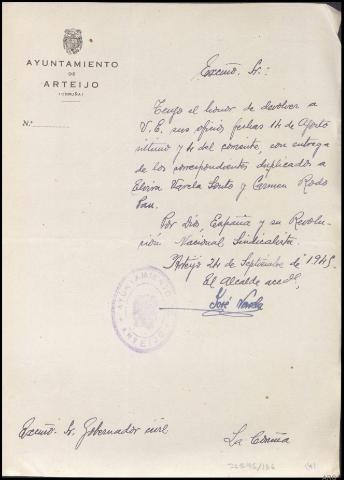 AYUNTAMIENTO
DE
ARTEIJO
(CORUÑA)
N.º
Excmo. Sr.:
Tengo el honor de devolver a
V.E. sus oficios fechas 14 de Agosto
último y 4 del corriente, con entrega
de los correspondientes duplicados a
Elvira Varela Souto y Carmen Rodo
Pan.
Por Dios, España y su Revolu-
ción Nacional Sindicalista.
Arteijo 24 de Septiembre de 1945
El Alcalde accal.
José Varela
AYUNTAMIENTO
ARTEIJO
Excmo. Sr. Gobernador civil
La Coruña